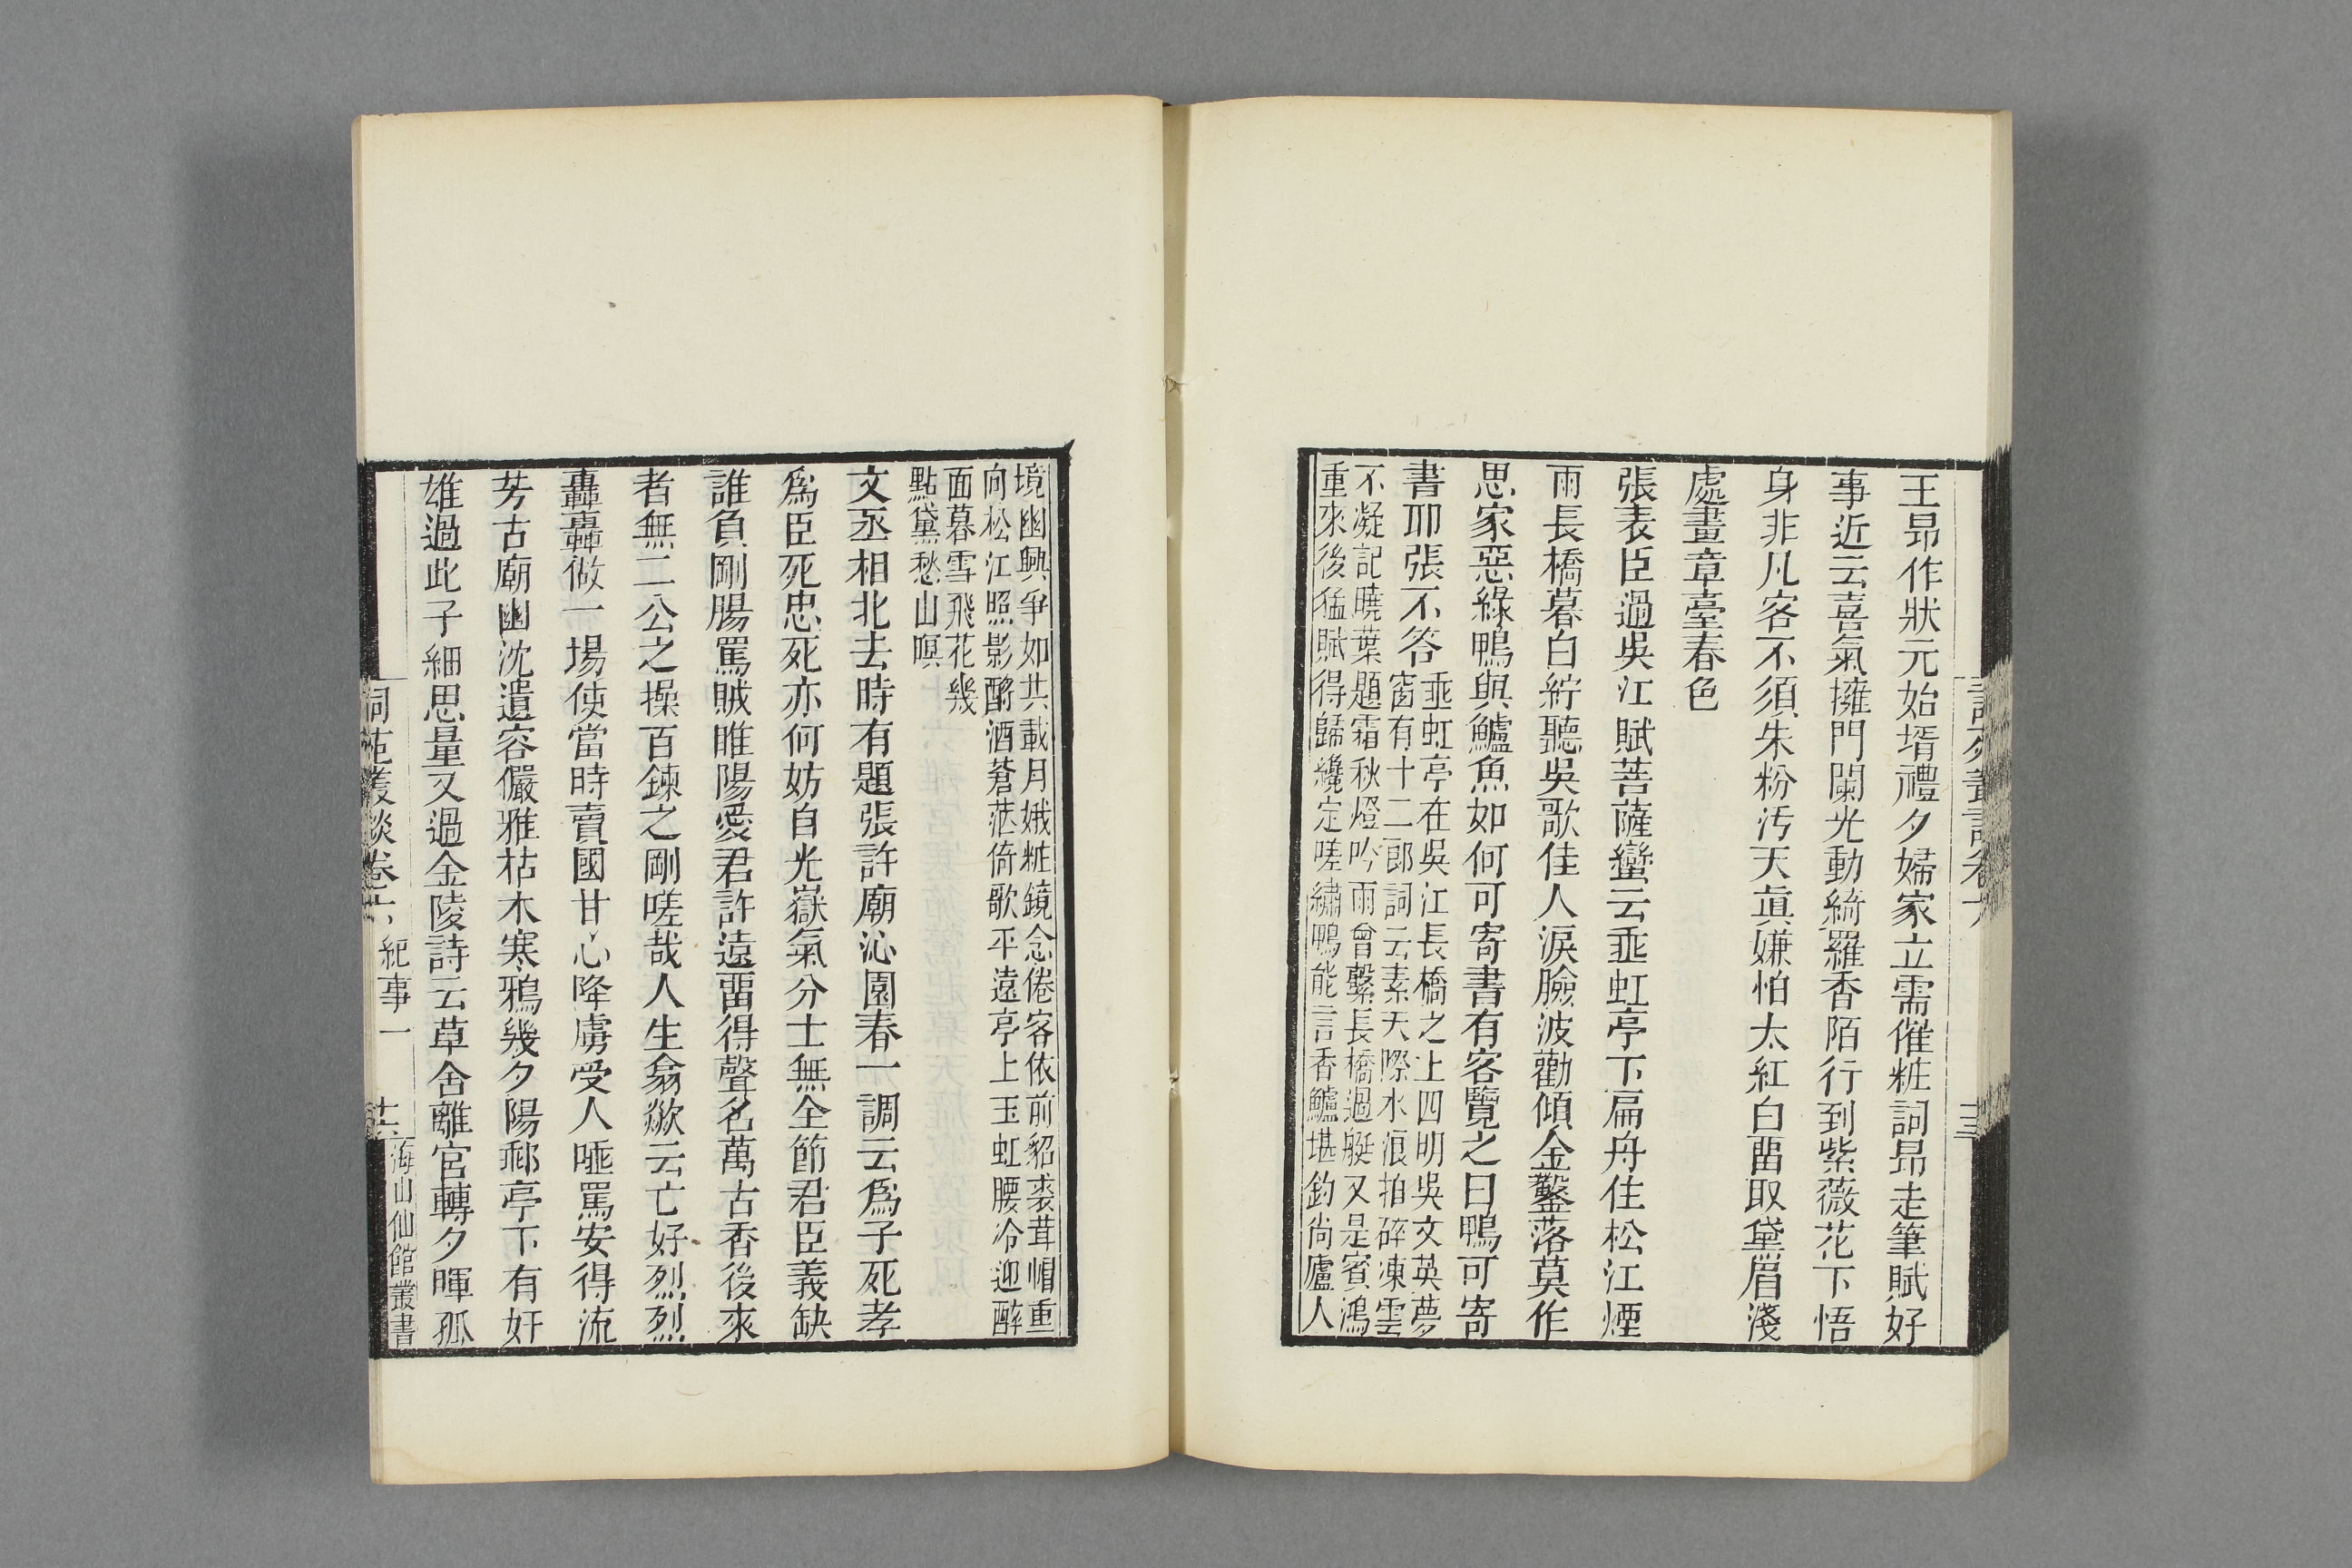 王昂作狀元始壻禮夕婦家立需催粧詞昂走筆賦好
事近云喜氣擁門闌光動綺羅香陌行到紫薇花下悟
身非凡客不須朱粉汚天眞嫌怕太紅白畱取黛眉淺
處畫章臺春色
張表臣過吳江賦菩薩蠻云垂虹亭下扁舟住松江煙
雨長橋暮白紵聽吳歌佳人淚臉波勸傾金鑿落莫作
思家惡綠鴨與鱸魚如何可寄書有客覽之曰鴨可寄
書耶張不答
垂虹亭在吳江長橋之上四明吳文英夢
窗有十二郎詞云素天際水浪拍碎凍雲
不凝記曉葉題霜秋燈吟雨曾繫長橋過艇又是賓鴻
重來後猛賦得歸纔定嗟繡鴨能言香鱸堪釣尚廬人
境幽興爭如共載月娥粧鏡念倦客依前貂裘茸帽重
向松江照影酹酒蒼茫倚歌平遠亭上玉虹腰冷迎醉
面暮雪飛花幾
點黛愁山暝
文丞相北去時有題張許廟沁園春一調云爲子死孝
爲臣死忠死亦何妨自光嶽氣分士無全節君臣義缺
誰負剛腸罵賊睢陽愛君許遠畱得聲名萬古香後來
者無二公之操百鍊之剛嗟哉人生翕歘云亡好烈烈
轟轟做一場使當時賣國甘心降虜受人唾罵安得流
芳古廟幽沈遺容儼雅枯木寒鴉幾夕陽郵亭下有奸
雄過此子細思量又過金陵詩云草舍離宮轉夕暉孤
詞苑叢談卷六 紀事一 十六 海山仙館叢書